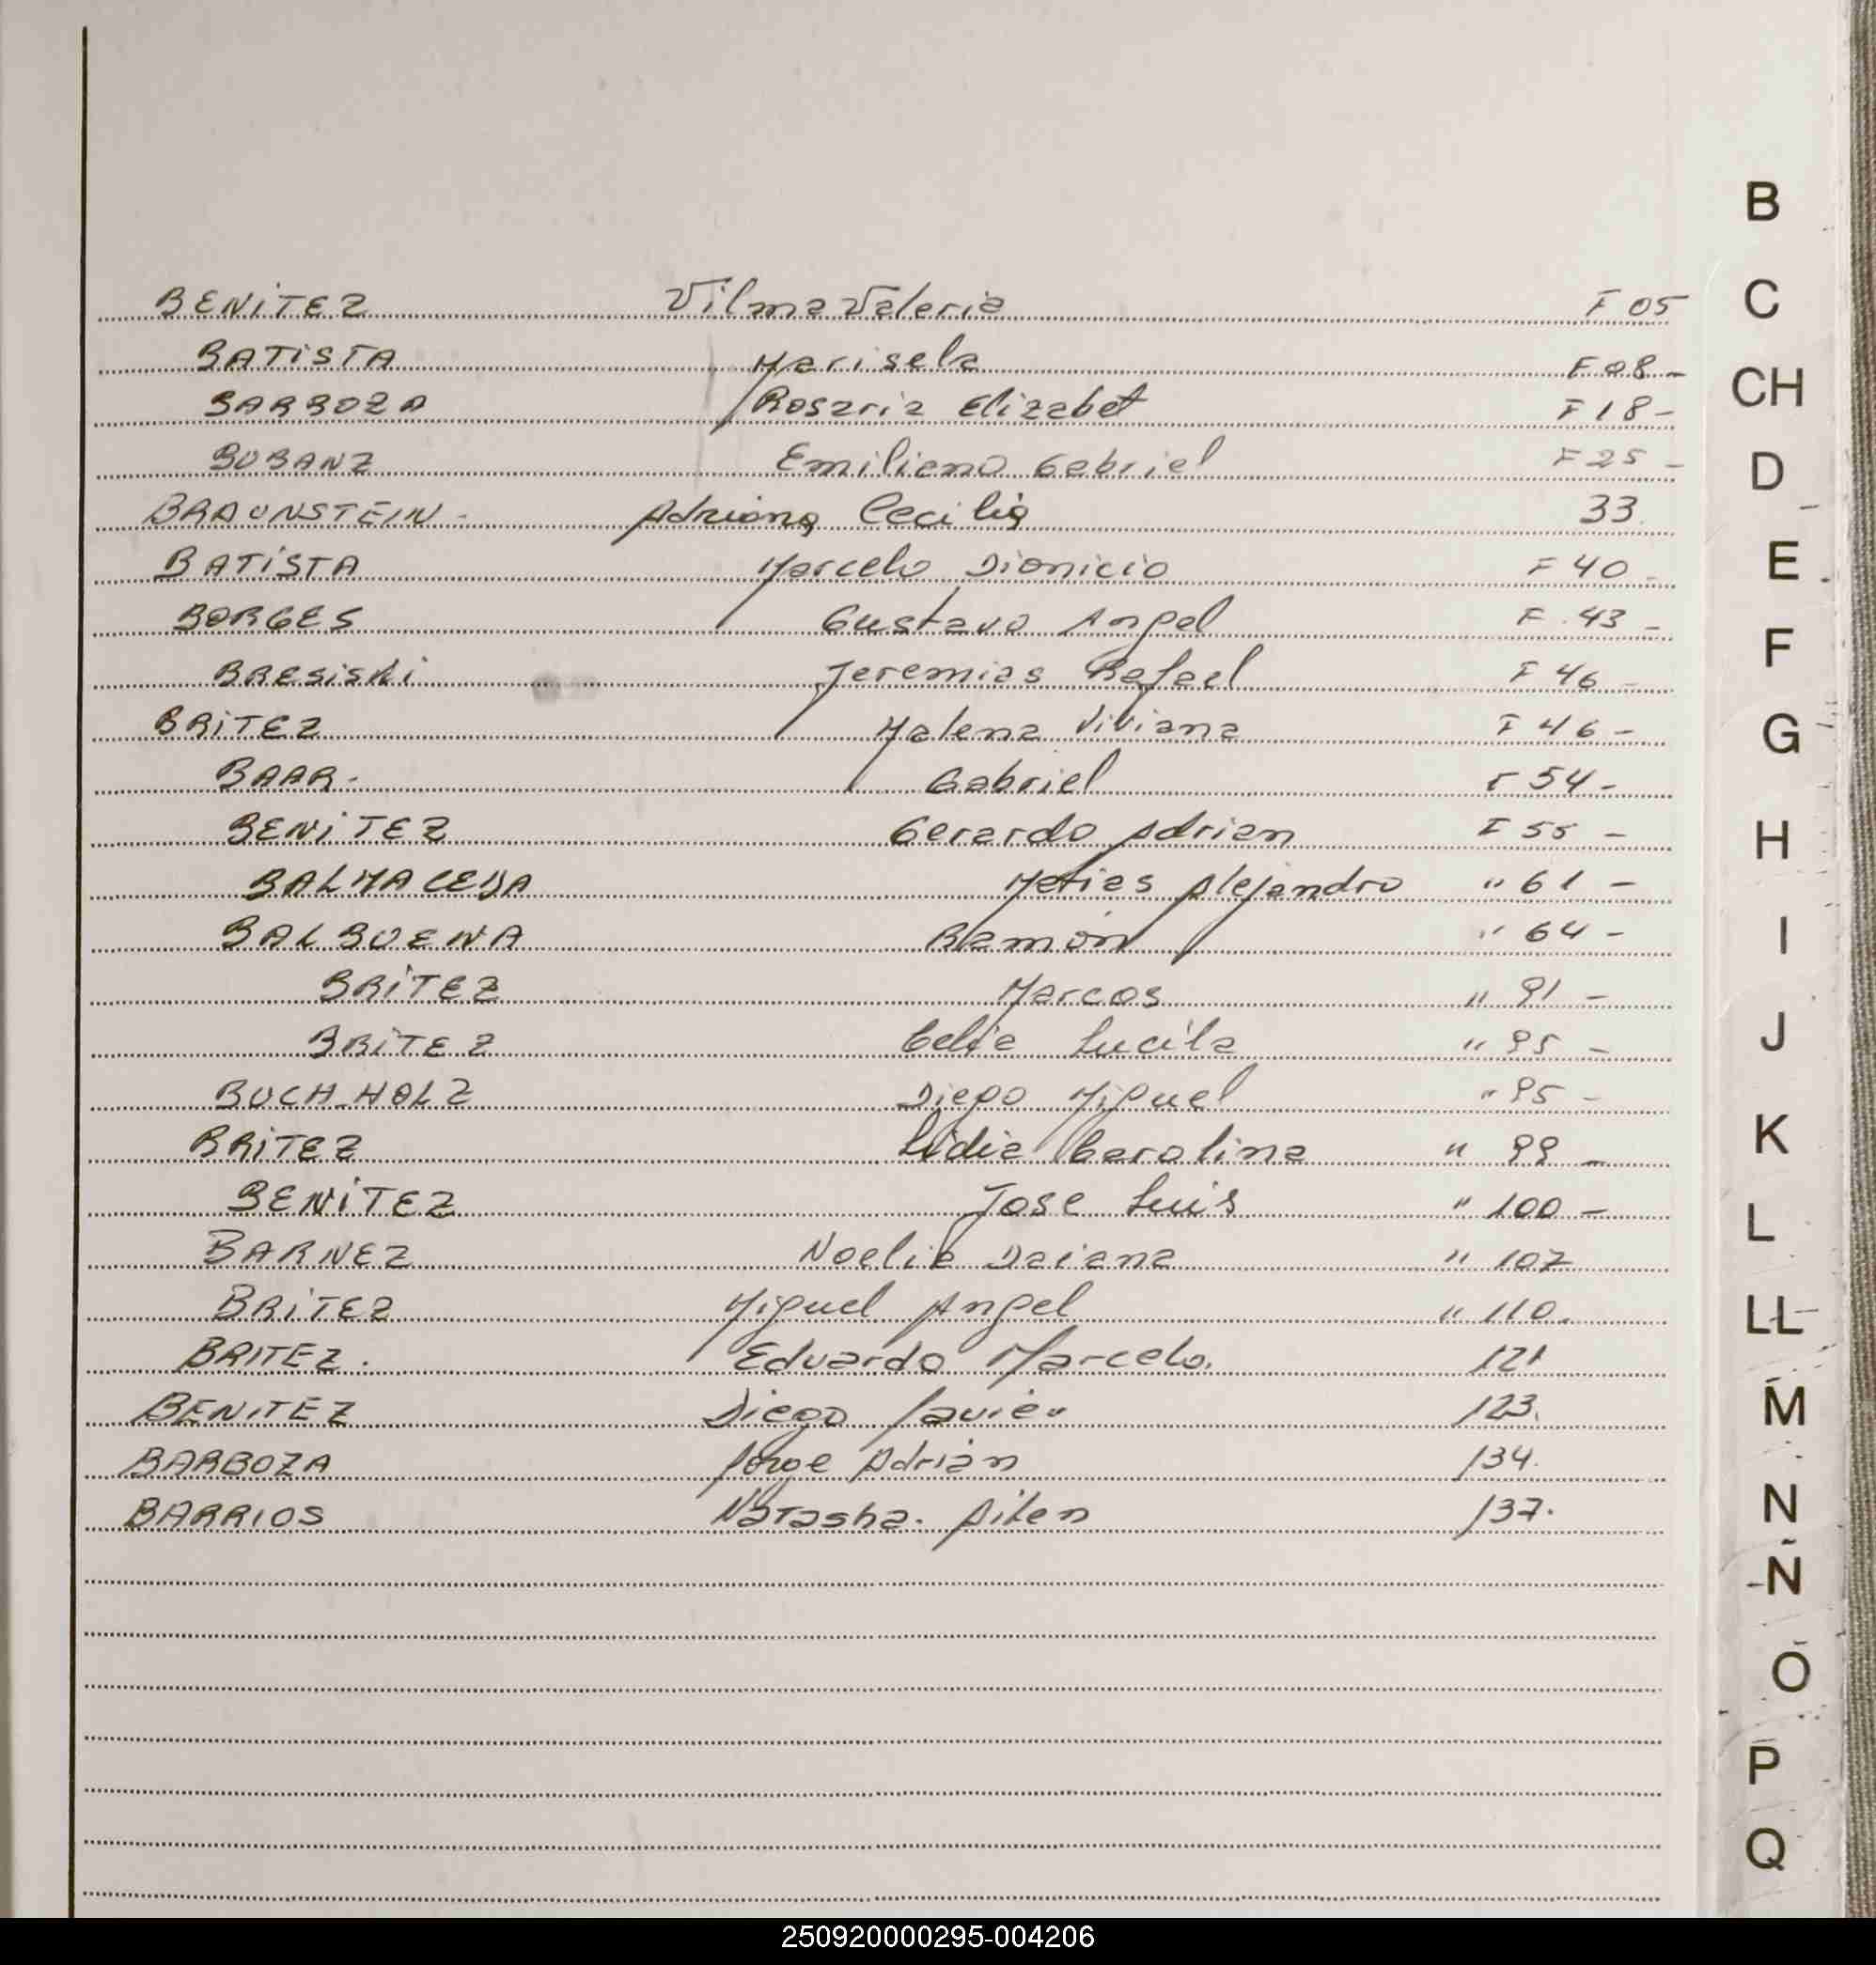 BENITEZ Vilma Valeria F 05
BATISTA Marisela F 08 -
BARBOZA Rosaria Elizabet F 18 -
BUBANZ Emiliano Gabriel F 25 -
BRAUNSTEIN - Adriana Cecilia 33
BATISTA Marcelo Dionicio F 40 -
BORGES Gustavo Angel F 43 -
BRESISKI Jeremias Rafael F 46 -
BRITEZ Malena Viviana F 46 -
BAAR - Gabriel F 54 -
BENITEZ Gerardo Adrian F 55 -
BALMACEDA Matias Alejandro " 61 -
BALBUENA Ramón " 64 -
BRITEZ Marcos " 91 -
BRITEZ Celia Lucila " 95 -
BUCH-HOLZ Diego Miguel " 95 -
BRITEZ Lidia Carolina " 99 -
BENITEZ Jose Luis " 100 -
BARNEZ Noelia Daiana " 107
BRITEZ Miguel Angel " 110.
BRITEZ. Eduardo Marcelo. 121
BENITEZ Diego Javier 123.
BARBOZA Jorge Adrián 134.
BARRIOS Natasha. Ailen 137.
B
C
CH
D
E
F
G
H
I
J
K
L
LL
M
N
Ñ
O
P
Q
250920000295-004206